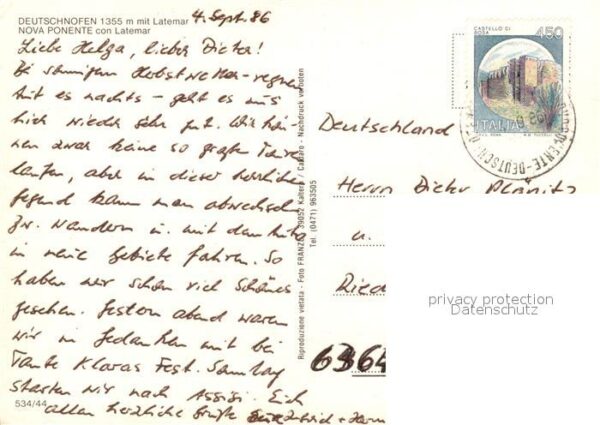 DEUTSCHNOFEN 1355 m mit Latemar
NOVA PONENTE con Latemar
4. Sept. 86
Liebe Helga, lieber Dieter!
Bei sonnigem Herbstwetter - regnen
tut es nachts - geht es uns
hier wieder sehr gut. Wir kön-
nen zwar keine so große Touren
laufen, aber in dieser herrlichen
Gegend kann man abwechselnd
zw. wandern u. mit dem Auto
in neue Gebiete fahren. So
haben wir schon viel Schönes
gesehen. Gestern abend waren
wir in Gedanken mit bei
Tante Klaras Fest. Samstag
starten wir nach Assisi. Euch
allen herzliche Grüße
534/44
Riproduzione vietata - Foto FRANZL 39052 Kaltern / Caldaro - Nachdruck verboten
Tel. (0471) 963505
CASTELLO DI
BOSA
450
ITALIA
Deutschland
Herrn Dieter
u.
Ried
6364
privacy protection
Datenschutz